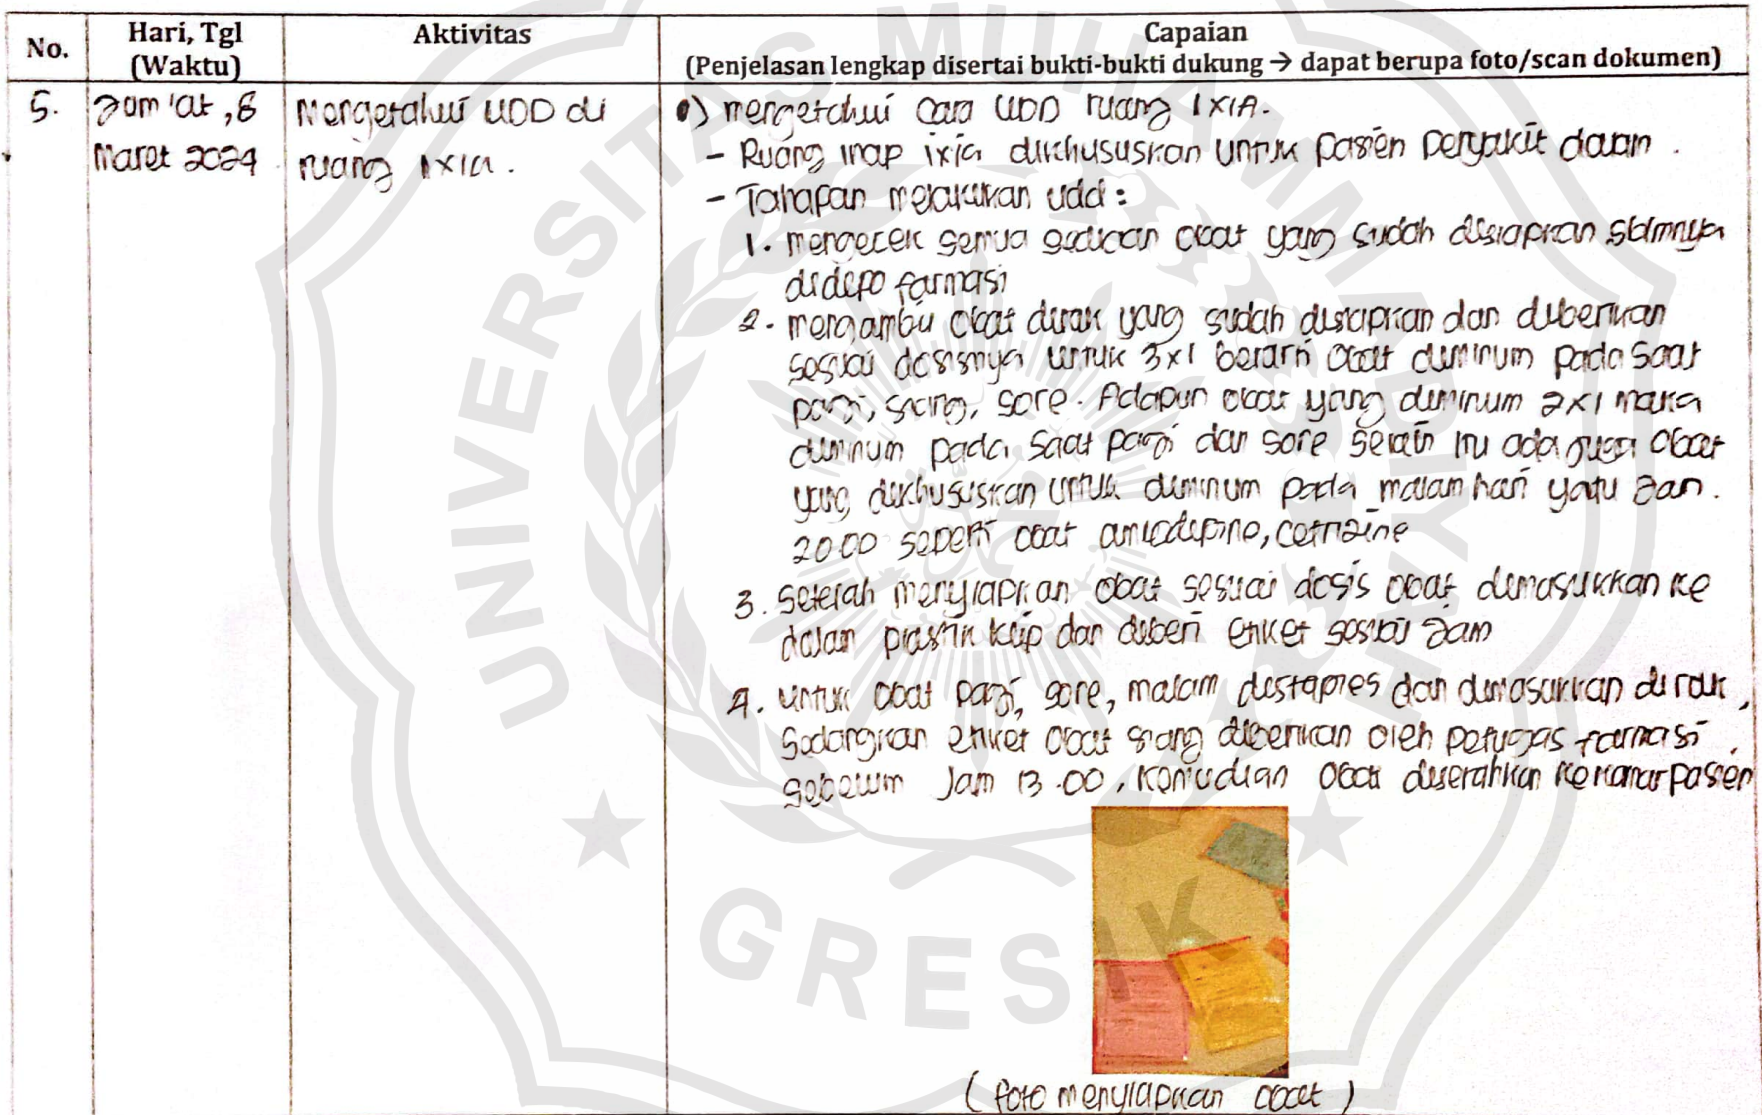 No.
Hari, Tgl
(Waktu)
Aktivitas
Capaian
(Penjelasan lengkap disertai bukti-bukti dukung → dapat berupa foto/scan dokumen)
5.
Jum'at, 8
Maret 2024
Mengetahui UDD di
ruang ixia.
•) mengetahui cara UDD ruang IXIA.
- Ruang inap ixia dikhususkan untuk pasien penyakit dalam.
- Tahapan melakukan udd :
1. mengecek semua sediaan obat yang sudah disiapkan sblmnya
didepo farmasi
2. mengambil obat dirak yang sudah disiapkan dan diberikan
sesuai dosisnya untuk 3x1 berarti obat diminum pada saat
pagi, siang, sore. Adapun obat yang diminum 2x1 maka
diminum pada saat pagi dan sore selain itu ada juga obat
yang dikhususkan untuk diminum pada malam hari yaitu Jam.
20.00 seperti obat amlodipine, cetirizine
3. Setelah menyiapkan obat sesuai dosis obat dimasukkan ke
dalam plastik klip dan diberi etiket sesuai Jam
4. untuk obat pagi, sore, malam distaples dan dimasukkan di rak,
Sedangkan etiket obat siang diberikan oleh petugas farmasi
sebelum Jam 13.00, kemudian obat diserahkan ke kamar pasien
(foto menyiapkan obat)
UNIVERSITAS MUHAMMADIYAH
GRESIK